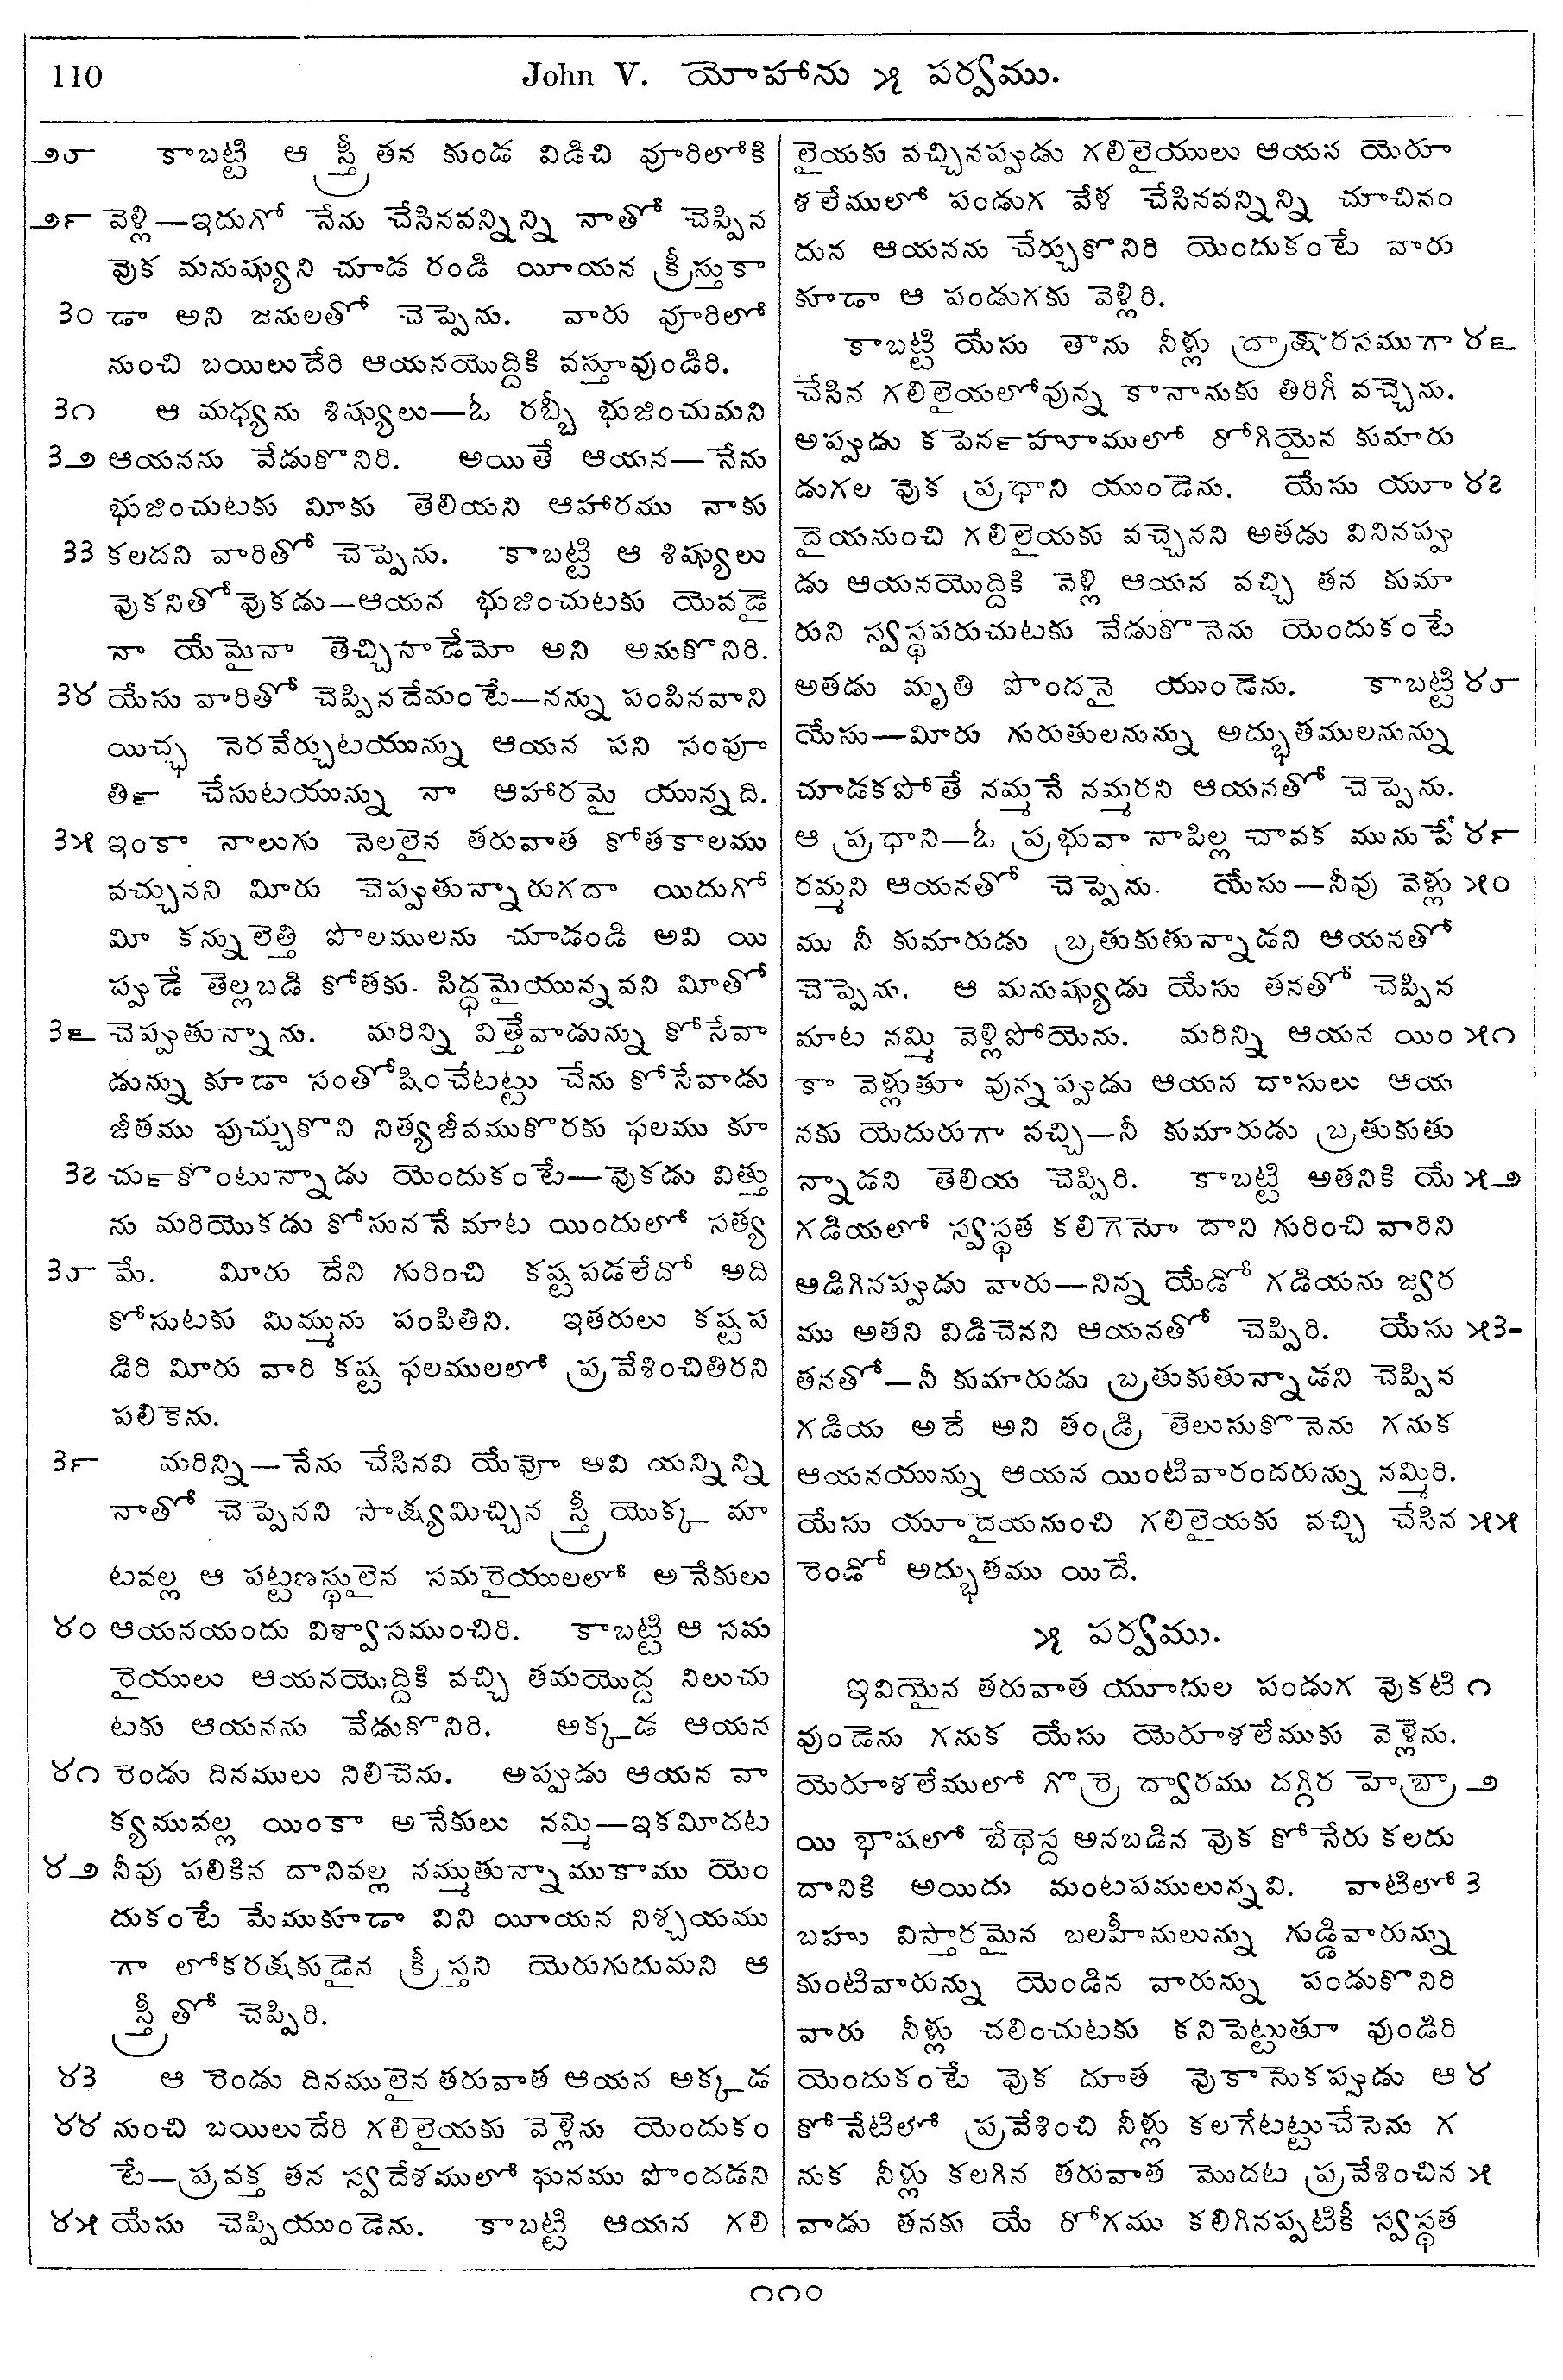 110
John V. యోహాను ౫ పర్వము.
౨౮ కాబట్టి ఆ స్త్రీ తన కుండ విడిచి వూరిలోకి
౨౯ వెళ్లి—ఇదుగో నేను చేసినవన్నిన్ని నాతో చెప్పిన
వుక మనుష్యుని చూడ రండి యీయన క్రీస్తుకా
౩౦ డా అని జనులతో చెప్పెను. వారు వూరిలో
నుంచి బయిలుదేరి ఆయనయొద్దికి వస్తూవుండిరి.
౩౧ ఆ మధ్యను శిష్యులు—ఓ రబ్బీ భుజించుమని
౩౨ ఆయనను వేడుకొనిరి. అయితే ఆయన—నేను
భుజించుటకు మీకు తెలియని ఆహారము నాకు
౩౩ కలదని వారితో చెప్పెను. కాబట్టి ఆ శిష్యులు
వుకనితో వుకడు—ఆయన భుజించుటకు యెవడై
నా యేమైనా తెచ్చినాడేమో అని అనుకొనిరి.
౩౪ యేసు వారితో చెప్పినదేమంటే—నన్ను పంపినవాని
యిచ్ఛ నెరవేర్చుటయున్ను ఆయన పని సంపూ
తిన౯ చేసుటయున్ను నా ఆహారమై యున్నది.
౩౫ ఇంకా నాలుగు నెలలైన తరువాత కోతకాలము
వచ్చునని మీరు చెప్పుతున్నారుగదా యిదుగో
మీ కన్నులెత్తి పొలములను చూడండి అవి యి
ప్పుడే తెల్లబడి కోతకు సిద్ధమైయున్నవని మీతో
౩౬ చెప్పుతున్నాను. మరిన్ని విత్తేవాడున్ను కోసేవా
డున్ను కూడా సంతోషించేటట్టు చేను కోసేవాడు
జీతము పుచ్చుకొని నిత్యజీవముకొరకు ఫలము కూ
౩౭ చు౯కొంటున్నాడు యెందుకంటే—వుకడు విత్తు
ను మరియొకడు కోసుననే మాట యిందులో సత్య
౩౮ మే. మీరు దేని గురించి కష్టపడలేదో అది
కోసుటకు మిమ్మును పంపితిని. ఇతరులు కష్టప
డిరి మీరు వారి కష్ట ఫలములలో ప్రవేశించితిరని
పలికెను.
౩౯ మరిన్ని—నేను చేసినవి యేవో అవి యన్నిన్ని
నాతో చెప్పెనని సాక్ష్యమిచ్చిన స్త్రీ యొక్క మా
టవల్ల ఆ పట్టణస్థులైన సమరైయులలో అనేకులు
౪౦ ఆయనయందు విశ్వాసముంచిరి. కాబట్టి ఆ సమ
రైయులు ఆయనయొద్దికి వచ్చి తమయొద్ద నిలుచు
టకు ఆయనను వేడుకొనిరి. అక్కడ ఆయన
౪౧ రెండు దినములు నిలిచెను. అప్పుడు ఆయన వా
క్యమువల్ల యింకా అనేకులు నమ్మి—ఇకమీదట
౪౨ నీవు పలికిన దానివల్ల నమ్ముతున్నాముకాము యెం
దుకంటే మేముకూడా విని యీయన నిశ్చయము
గా లోకరక్షకుడైన క్రీస్తని యెరుగుదుమని ఆ
స్త్రీతో చెప్పిరి.
౪౩ ఆ రెండు దినములైన తరువాత ఆయన అక్కడ
౪౪ నుంచి బయిలుదేరి గలిలైయకు వెళ్లెను యెందుకం
టే—ప్రవక్త తన స్వదేశములో ఘనము పొందడని
౪౫ యేసు చెప్పియుండెను. కాబట్టి ఆయన గలి
లైయకు వచ్చినప్పుడు గలిలైయులు ఆయన యెరూ
శలేములో పండుగ వేళ చేసినవన్నిన్ని చూచినం
దున ఆయనను చేర్చుకొనిరి యెందుకంటే వారు
కూడా ఆ పండుగకు వెళ్లిరి.
కాబట్టి యేసు తాను నీళ్లు ద్రాక్షారసముగా ౪౬
చేసిన గలిలైయలోవున్న కానానుకు తిరిగీ వచ్చెను.
అప్పుడు కపెన౯హూములో రోగియైన కుమారు
డుగల వుక ప్రధాని యుండెను. యేసు యూ ౪౭
దైయనుంచి గలిలైయకు వచ్చెనని అతడు వినినప్పు
డు ఆయనయొద్దికి వెళ్లి ఆయన వచ్చి తన కుమా
రుని స్వస్థపరుచుటకు వేడుకొనెను యెందుకంటే
అతడు మృతి పొందనై యుండెను. కాబట్టి ౪౮
యేసు—మీరు గురుతులనున్ను అద్భుతములనున్ను
చూడకపోతే నమ్మనే నమ్మరని ఆయనతో చెప్పెను.
ఆ ప్రధాని—ఓ ప్రభువా నాపిల్ల చావక మునుపే ౪౯
రమ్మని ఆయనతో చెప్పెను. యేసు—నీవు వెళ్లు ౫౦
ము నీ కుమారుడు బ్రతుకుతున్నాడని ఆయనతో
చెప్పెను. ఆ మనుష్యుడు యేసు తనతో చెప్పిన
మాట నమ్మి వెళ్లిపోయెను. మరిన్ని ఆయన యిం ౫౧
కా వెళ్లుతూ వున్నప్పుడు ఆయన దాసులు ఆయ
నకు యెదురుగా వచ్చి—నీ కుమారుడు బ్రతుకుతు
న్నాడని తెలియ చెప్పిరి. కాబట్టి అతనికి యే ౫౨
గడియలో స్వస్థత కలిగెనో దాని గురించి వారిని
ఆడిగినప్పుడు వారు—నిన్న యేడో గడియను జ్వర
ము అతని విడిచెనని ఆయనతో చెప్పిరి. యేసు ౫౩-
తనతో—నీ కుమారుడు బ్రతుకుతున్నాడని చెప్పిన
గడియ అదే అని తండ్రి తెలుసుకొనెను గనుక
ఆయనయున్ను ఆయన యింటివారందరున్ను నమ్మిరి.
యేసు యూదైయనుంచి గలిలైయకు వచ్చి చేసిన ౫౫
రెండో అద్భుతము యిదే.
౫ పర్వము.
ఇవియైన తరువాత యూదుల పండుగ వుకటి ౧
వుండెను గనుక యేసు యెరూశలేముకు వెళ్లెను.
యెరూశలేములో గొర్రె ద్వారము దగ్గిర హెబ్రా ౨
యి భాషలో బేథెస్ద అనబడిన వుక కోనేరు కలదు
దానికి అయిదు మంటపములున్నవి. వాటిలో ౩
బహు విస్తారమైన బలహీనులున్ను గుడ్డివారున్ను
కుంటివారున్ను యెండిన వారున్ను పండుకొనిరి
వారు నీళ్లు చలించుటకు కనిపెట్టుతూ వుండిరి
యెందుకంటే వుక దూత వుకానుకప్పుడు ఆ ౪
కోనేటిలో ప్రవేశించి నీళ్లు కలగేటట్టుచేసెను గ
నుక నీళ్లు కలగిన తరువాత మొదట ప్రవేశించిన ౫
వాడు తనకు యే రోగము కలిగినప్పటికీ స్వస్థత
౧౧౦